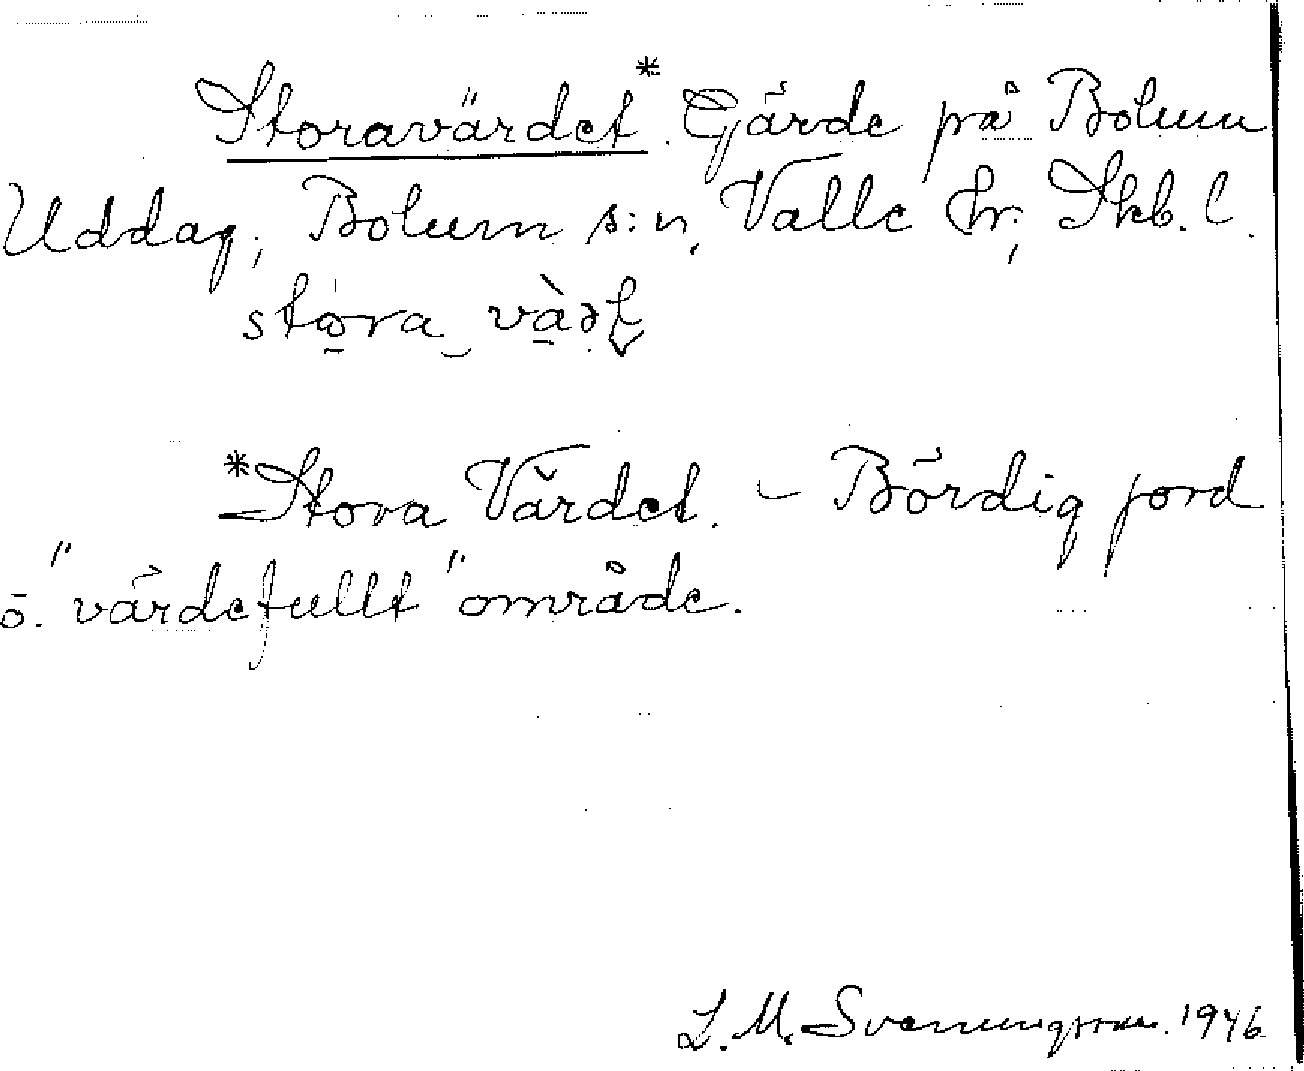 Storavärdet*. Gärde på Bolum
Uddag, Bolum s:n, Valle hr; Skb. l.
*Stora Värdet. – Bördig jord
o. "värdefullt" område.
L. M. Svenungsson. 1946